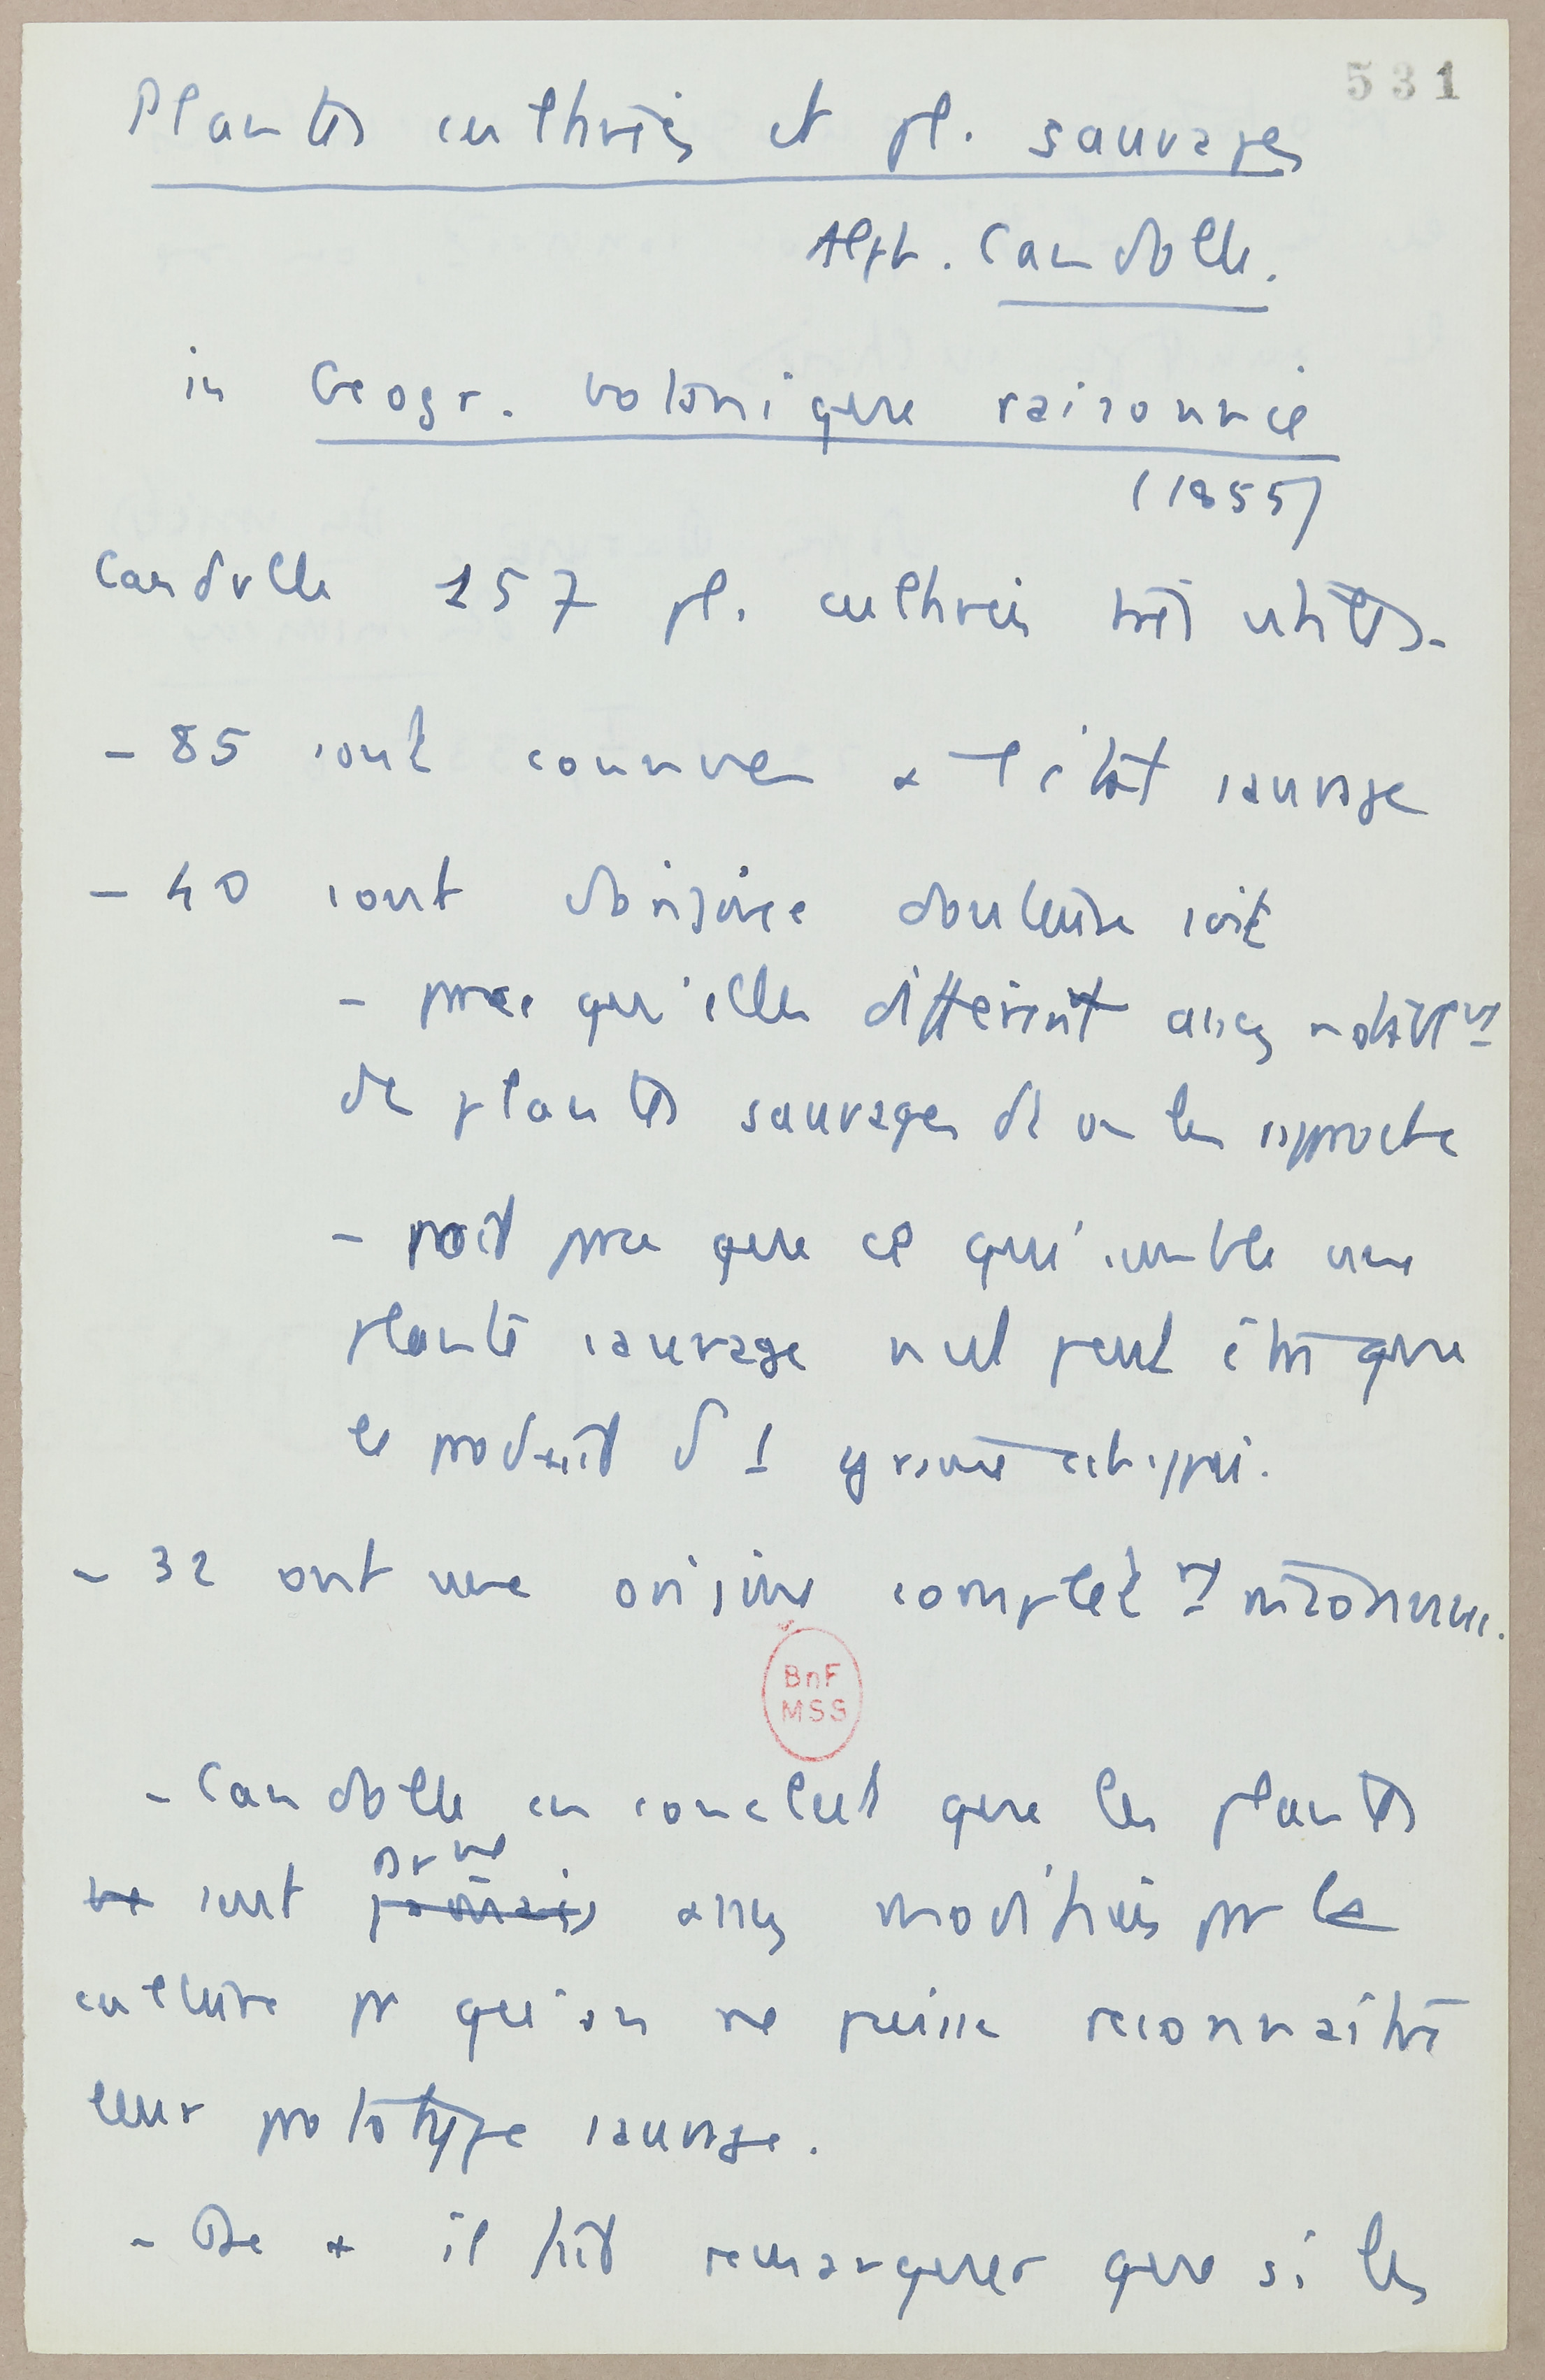 531
Plantes cultivées et pl. sauvages
Alph. Candolle.
in Geogr. botanique raisonnée
(1855)
Candolle 157 pl. cultivées très utiles.
- 85 sont connues à l'état sauvage
- 40 sont d'origine douteuse soit
- parce qu'elles diffèrent assez notablt
de plantes sauvages dt on les rapproche
- soit parce que ce qui semble une
plante sauvage n'est peut être que
le produit d'1 graine échappée.
- 32 ont une origine complètt inconnue.
BnF
MSS
- Candolle en conclut que les plantes
ne sont jamais assez modifiées par la
culture pr qu'on ne puisse reconnaître
leur prototype sauvage.
- De + il fait remarquer que si les